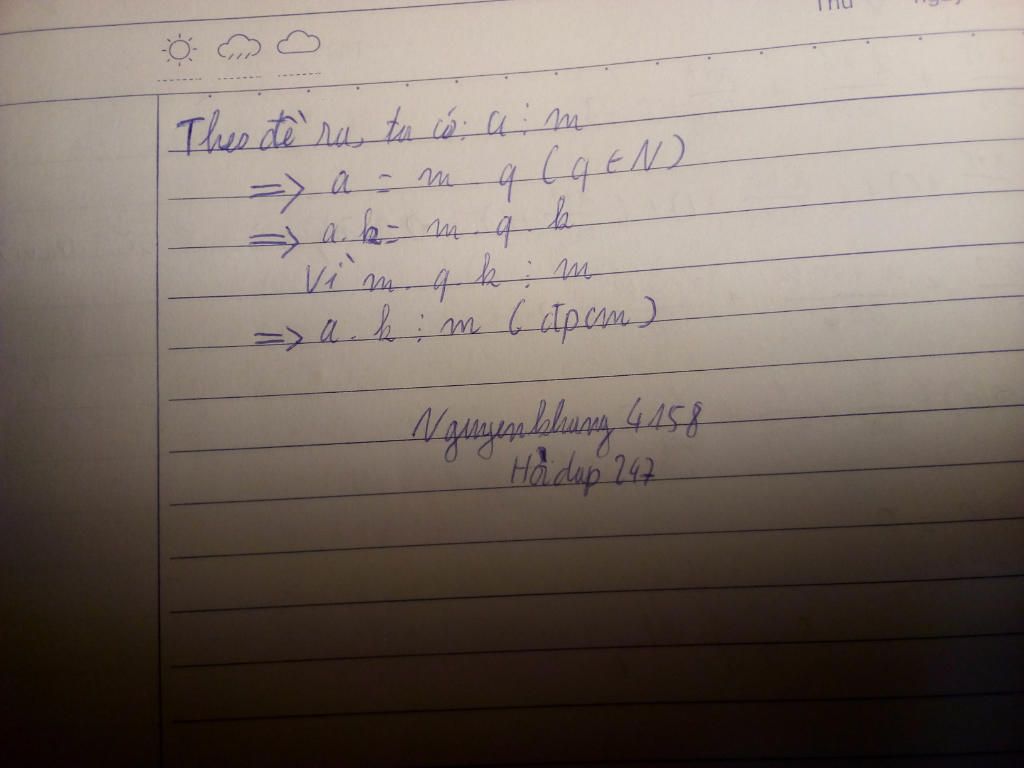 Thứ
Theo đề ra, ta có: a ⋮ m
=> a = m q (q ∈ N)
=> a.k = m.q.k
Vì m.q.k ⋮ m
=> a.k ⋮ m (đpcm)
Nguyenkhung 4158
Hỏi đap 247